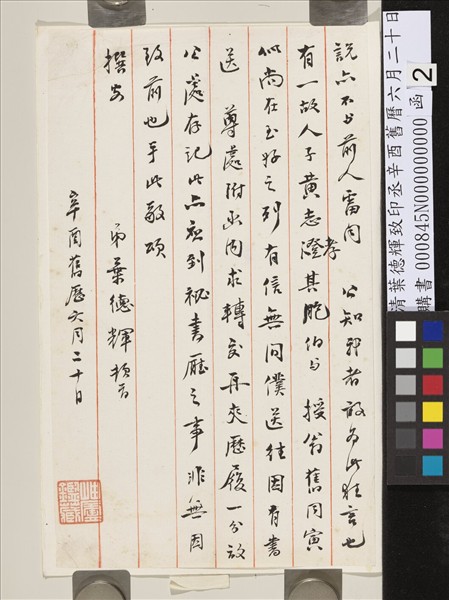 說亦不與前人雷同　公知我者敢為此狂言也
有一故人子黃志澄其胞伯與　授翁舊同寅
孝
似尚在至好之列有信無問僕送往因有書
送　尊處附函內求轉交再夾歷履一分放
公處存記此亦應到祕書廳之事非無因
致前也手此敬頌
撰安
弟葉德輝頓首
辛酉舊歷六月二十日
清葉德輝致印丞辛酉舊曆六月二十日
購書 000845N000000000 函 2